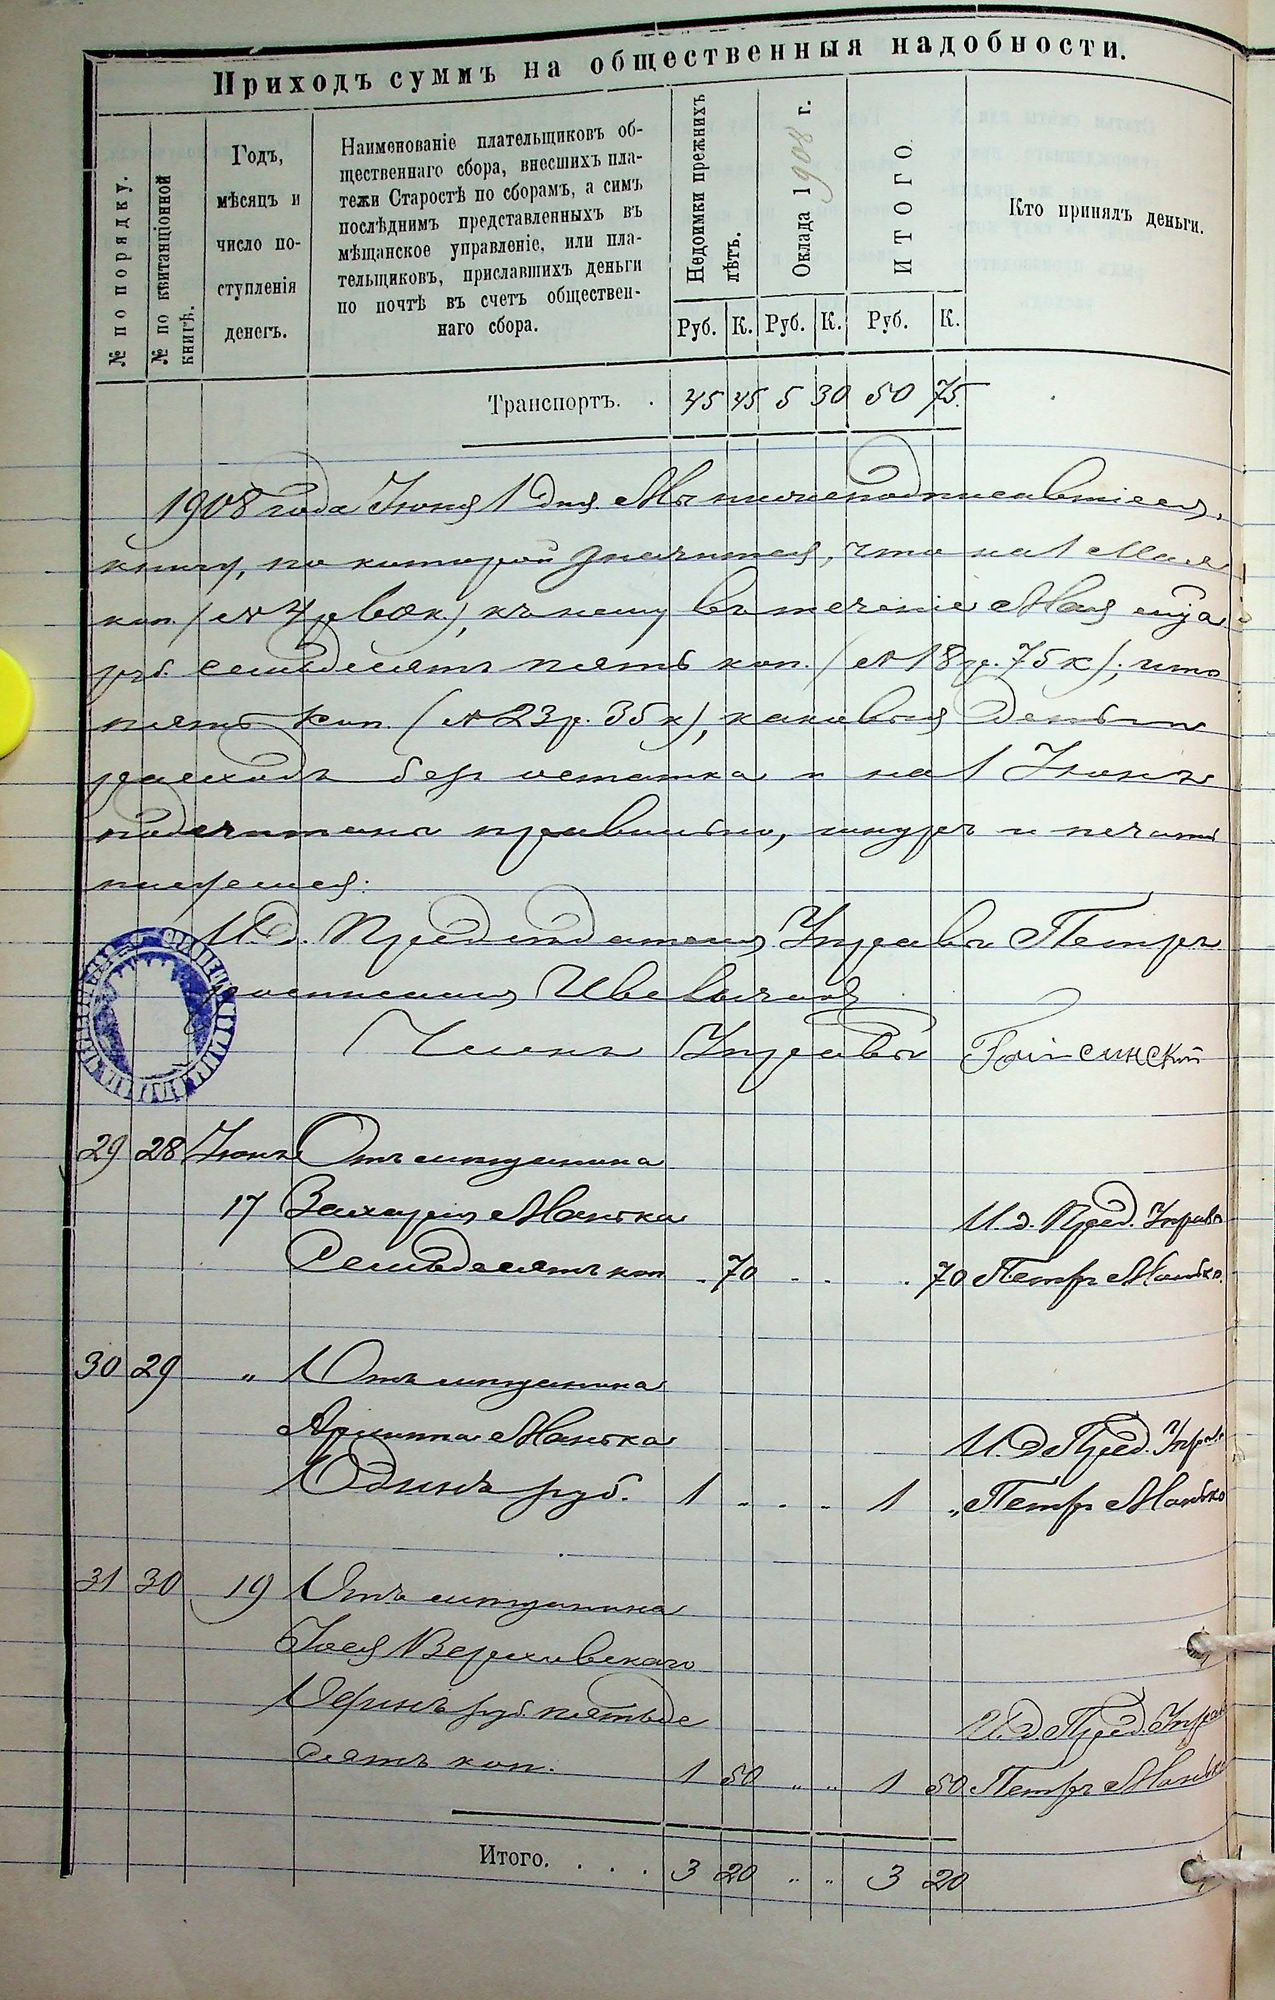 Приходъ суммъ на общественныя надобности.
№ по порядку.
№ по квитанціонной книгѣ.
Годъ,
мѣсяцъ и
число по-
ступленія
денегъ.
Наименованіе плательщиковъ об-
щественнаго сбора, внесшихъ пла-
тежи Старостѣ по сборамъ, а симъ
послѣднимъ представленныхъ въ
мѣщанское управленіе, или пла-
тельщиковъ, приславшихъ деньги
по почтѣ въ счетъ обществен-
наго сбора.
Недоимки прежнихъ лѣтъ.
Оклада 1908 г.
ИТОГО.
Кто принялъ деньги.
Руб. К. Руб. К. Руб. К.
Транспортъ. . 45 45 5 30 50 75.
1908 года Іюня 1 дня. Мы нижеподписавшіеся,
книгу, по которой значится, что на 1 Мая
коп. ( к.), къ нему въ теченіе Мая
руб. семьдесятъ пять коп. ( 18 р. 75 к); что
пять коп. ( 23 р. 35 к), каковыя деньги
расходъ безъ остатка и на 1 Іюнь
подсчитана правильно, шнуръ и печать
И. д. Председателя Управы Петръ
Членъ Управы
29 28 Іюнь Отъ мѣщанина
17 Захарія Манька И. д. Пред. Управы
Семьдесятъ коп . 70 . . . 70 Петръ Манько.
30 29 " Отъ мѣщанина
Архипа Манька И. д Пред. Управы
Одинъ руб. 1 . . . 1 " Петръ Манько
31 30 19 Отъ мѣщанина
Іося Верховскаго
Одинъ руб. пятьде И. д Пред. Управы
сятъ коп. 1 50 " " 1 50 Петръ Манько
Итого. . . . . 3 20 " " 3 20